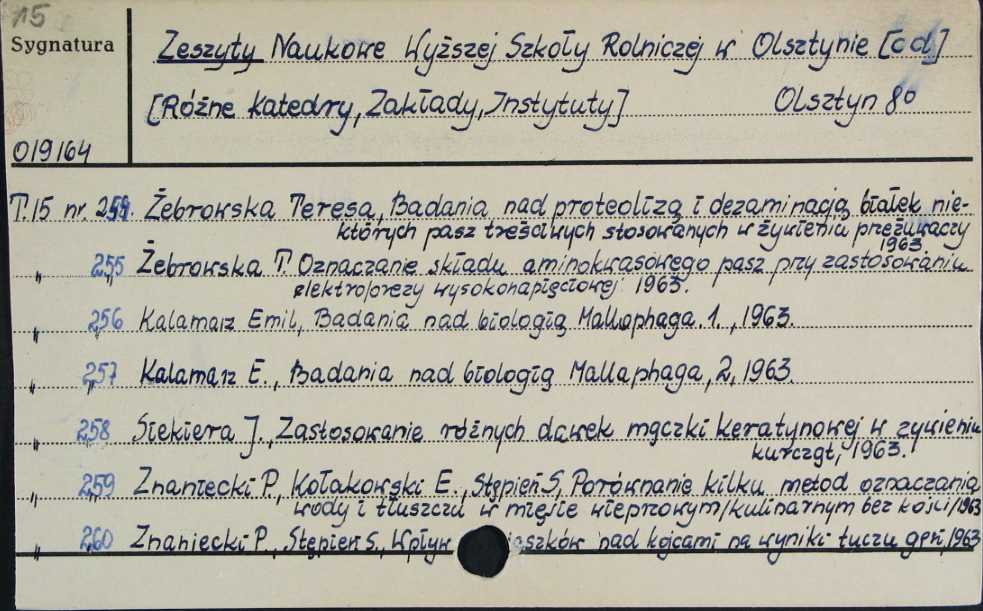 15
Sygnatura
Zeszyty Naukowe Wyższej Szkoły Rolniczej w Olsztynie [cd]
[Różne Katedry, Zakłady, Instytuty] Olsztyn 8°
019164
T. 15 nr. 254. Żebrowska Teresa, Badania nad proteolizą i dezaminacją białek nie-
których pasz treściwych stosowanych w żywieniu przeżuwaczy
1963.
" 255 Żebrowska T. Oznaczanie składu aminokwasowego pasz przy zastosowaniu
elektroforezy wysokonapięciowej 1963.
" 256 Kalamarz Emil, Badania nad biologią Mallophaga. 1., 1963.
" 257 Kalamarz E., Badania nad biologią Mallaphaga, 2, 1963.
" 258 Siekiera J., Zastosowanie różnych dawek mączki keratynowej w żywieniu
kurcząt, 1963.
" 259 Znaniecki P., Kołakowski E., Stępień S, Porównanie kilku metod oznaczania
wody i tłuszczu w mięsie wieprzowym/kulinarnym bez kości/1963
" 260 Znaniecki P., Stępień S., Wpływ daszków nad kojcami na wyniki tuczu gęsi, 1963